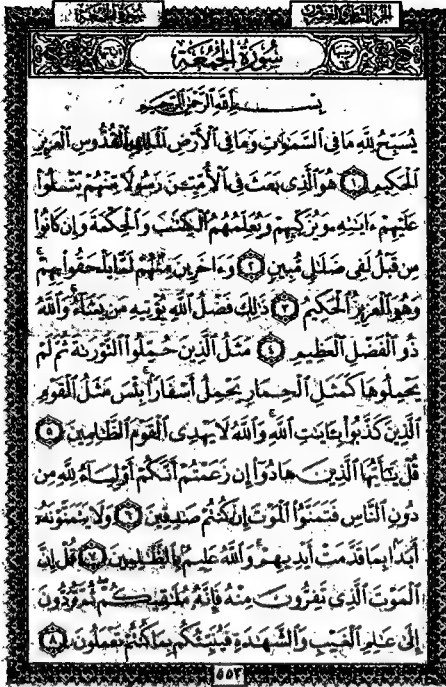 الجزء الثامن والعشرون سورة الجمعة
سُورَةُ الجُمُعَةِ
بِسْمِ اللَّهِ الرَّحْمَنِ الرَّحِيمِ
يُسَبِّحُ لِلَّهِ مَا فِي السَّمَٰوَٰتِ وَمَا فِي الْأَرْضِ الْمَلِكِ الْقُدُّوسِ الْعَزِيزِ
الْحَكِيمِ ١ هُوَ الَّذِي بَعَثَ فِي الْأُمِّيِّينَ رَسُولًا مِّنْهُمْ يَتْلُوا
عَلَيْهِمْ ءَايَٰتِهِ وَيُزَكِّيهِمْ وَيُعَلِّمُهُمُ الْكِتَٰبَ وَالْحِكْمَةَ وَإِن كَانُوا
مِن قَبْلُ لَفِي ضَلَٰلٍ مُّبِينٍ ٢ وَءَاخَرِينَ مِنْهُمْ لَمَّا يَلْحَقُوا بِهِمْ
وَهُوَ الْعَزِيزُ الْحَكِيمُ ٣ ذَٰلِكَ فَضْلُ اللَّهِ يُؤْتِيهِ مَن يَشَاءُ وَاللَّهُ
ذُو الْفَضْلِ الْعَظِيمِ ٤ مَثَلُ الَّذِينَ حُمِّلُوا التَّوْرَىٰةَ ثُمَّ لَمْ
يَحْمِلُوهَا كَمَثَلِ الْحِمَارِ يَحْمِلُ أَسْفَارًا بِئْسَ مَثَلُ الْقَوْمِ
الَّذِينَ كَذَّبُوا بِـَٔايَٰتِ اللَّهِ وَاللَّهُ لَا يَهْدِي الْقَوْمَ الظَّٰلِمِينَ ٥
قُلْ يَٰأَيُّهَا الَّذِينَ هَادُوا إِن زَعَمْتُمْ أَنَّكُمْ أَوْلِيَاءُ لِلَّهِ مِن
دُونِ النَّاسِ فَتَمَنَّوُا الْمَوْتَ إِن كُنتُمْ صَٰدِقِينَ ٦ وَلَا يَتَمَنَّوْنَهُ
أَبَدًا بِمَا قَدَّمَتْ أَيْدِيهِمْ وَاللَّهُ عَلِيمٌ بِالظَّٰلِمِينَ ٧ قُلْ إِنَّ
الْمَوْتَ الَّذِي تَفِرُّونَ مِنْهُ فَإِنَّهُ مُلَٰقِيكُمْ ثُمَّ تُرَدُّونَ
إِلَىٰ عَٰلِمِ الْغَيْبِ وَالشَّهَٰدَةِ فَيُنَبِّئُكُم بِمَا كُنتُمْ تَعْمَلُونَ ٨
٥٥٣